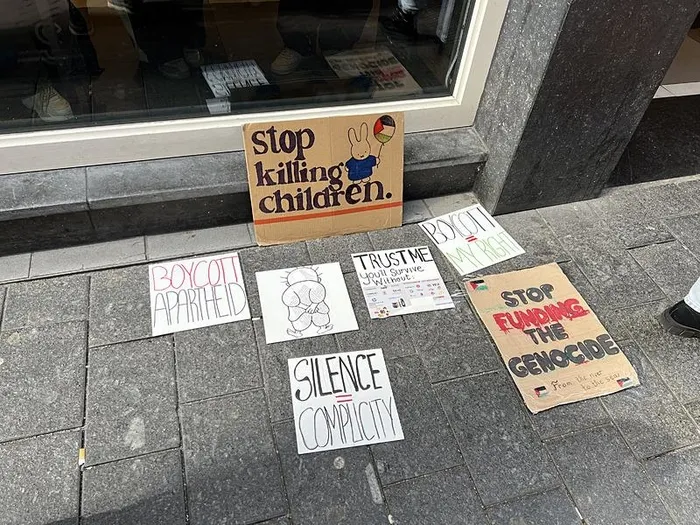 stop
killing
children.
BOYCOTT
=
MY RIGHT
TRUST ME
you'll survive
without:
BOYCOTT
APARTHEID
STOP
FUNDING
THE
GENOCIDE
From the river
to the sea
SILENCE
=
COMPLICITY